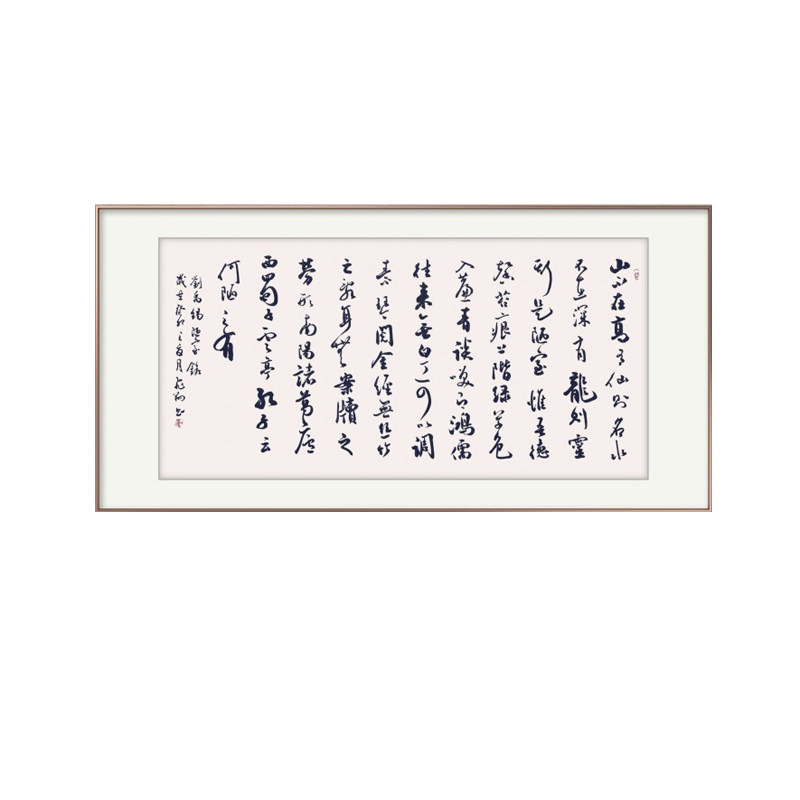 山不在高有仙則名水
不在深有龍則靈
斯是陋室惟吾德
馨苔痕上階綠草色
入簾青談笑有鴻儒
往来無白丁可以調
素琴閱金經無丝竹
之亂耳無案牘之
勞形南陽諸葛廬
西蜀子雲亭孔子云
何陋之有
劉禹锡陋室銘
歲在癸卯之月书